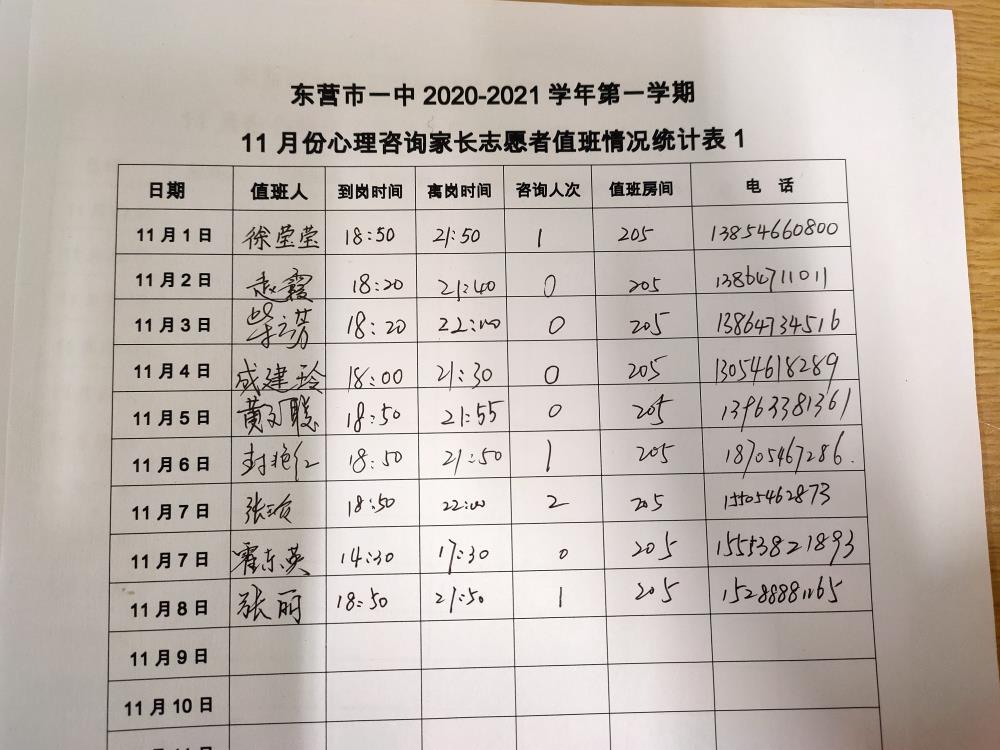 东营市一中 2020-2021 学年第一学期
11 月份心理咨询家长志愿者值班情况统计表 1
日期 值班人 到岗时间 离岗时间 咨询人次 值班房间 电 话
11 月 1 日 徐莹莹 18:50 21:50 1 205 13854660800
11 月 2 日 赵霞 18:20 21:40 0 205 13864711011
11 月 3 日 柴立芳 18:20 22:00 0 205 13864734516
11 月 4 日 成建玲 18:00 21:30 0 205 13054618289
11 月 5 日 18:50 21:55 0 205 13963381361
11 月 6 日 封艳红 18:50 21:50 1 205 18705467286.
11 月 7 日 18:50 22:00 2 205 15505462873
11 月 7 日 霍东英 14:30 17:30 0 205 15553821893
11 月 8 日 张丽 18:50 21:50 1 205
11 月 9 日
11 月 10 日